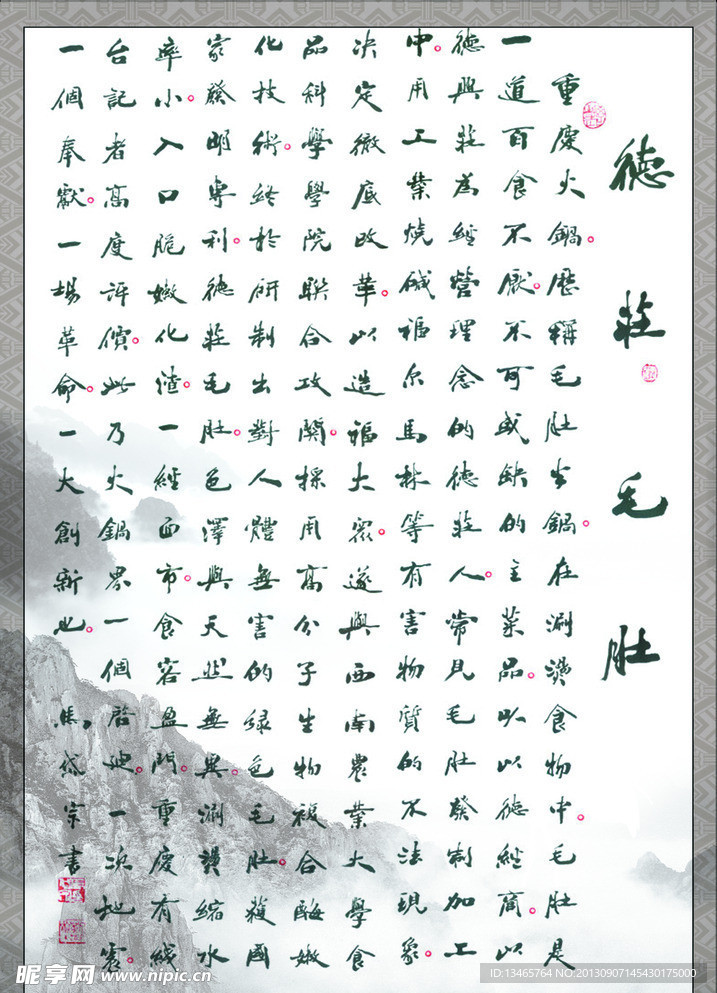 德莊毛肚
重慶火鍋。歷稱毛肚鍋。在涮燙食物中。毛肚是
一道百食不厭。不可或缺的主菜品。所以德經商。以
德興莊為經營理念的德莊人。常見毛肚發制加工
中。用工業燒碱福尔馬林等有害物質的不法現象。
决定徹底改革。以造福大眾。遂與西南農業大學食
品科學學院聯合攻關。採用高分子生物複合酶嫩
化技術。終於研制出對人體無害的绿色毛肚。獲國
家發明專利。德莊毛肚。色澤與天然無異。涮燙縮水
率小。入口脆嫩化渣。一經面市。食客盈門。重慶有綫
台記者高度評價。此乃火鍋界一個啟迪。一次地震。
一個奉獻。一場革命。一大創新也。馬岱宗書
昵享网 www.nipic.cn
ID:13465764 NO:20130907145430175000